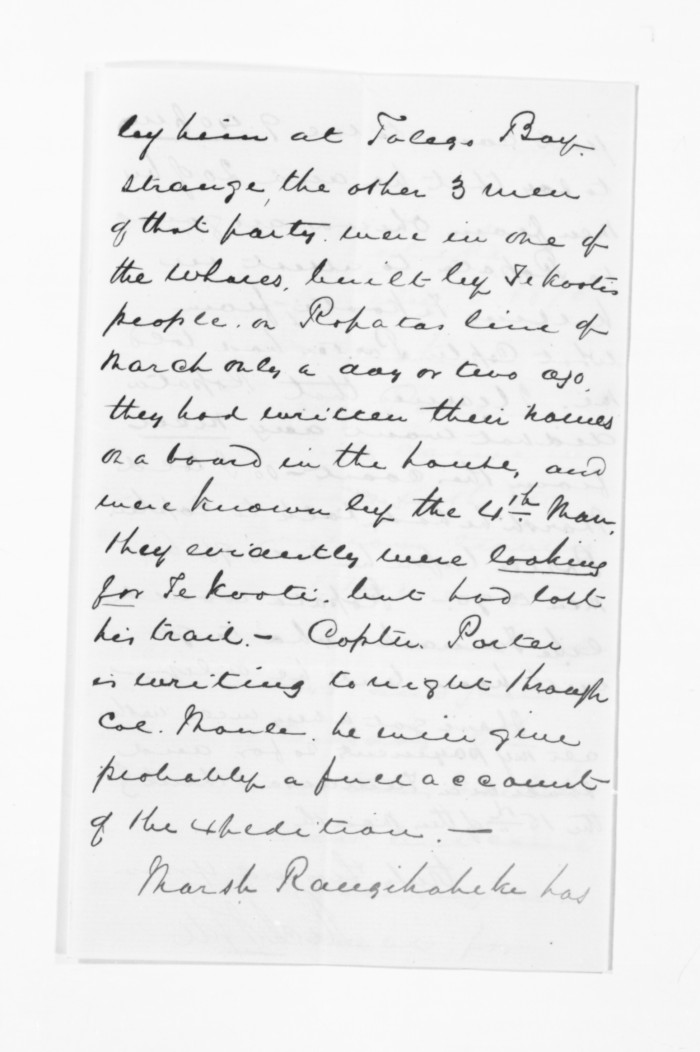 by him at Tolago Bay.
strange, the other 3 men
of that party. were in one of
the Whares, built by Te Kootis
people. on Ropatas line of
March only a day or two ago.
they had written their names
on a board in the house, and
were known by the 4th Man.
they evidently were looking
for Te Kooti. but had lost
his trail. — Captn. Porter
is writing to night through
Col. Moule. he will give
probably a full account
of the expedition. —
Marsh Rangikaheke has